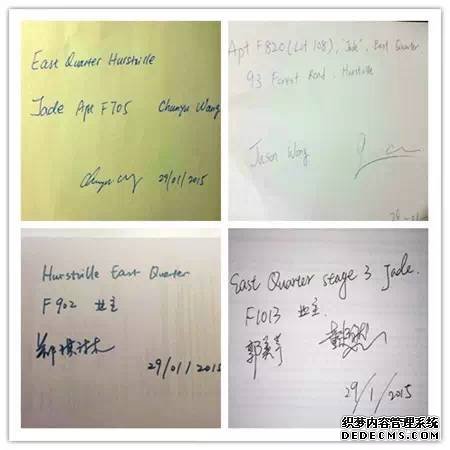 East Quarter Hurstville
Jade Apt F705 Chunyu Wang
29/01/2015
Apt F820 (Lot 108), "Jade", East Quarter
93 Forest Road, Hurstville
Jason Wong
Hurstville East Quarter
F902 业主
29/01/2015
East Quarter stage 3 Jade.
F1013 业主.
29/1/2015
织梦内容管理系统
DEDECMS.COM